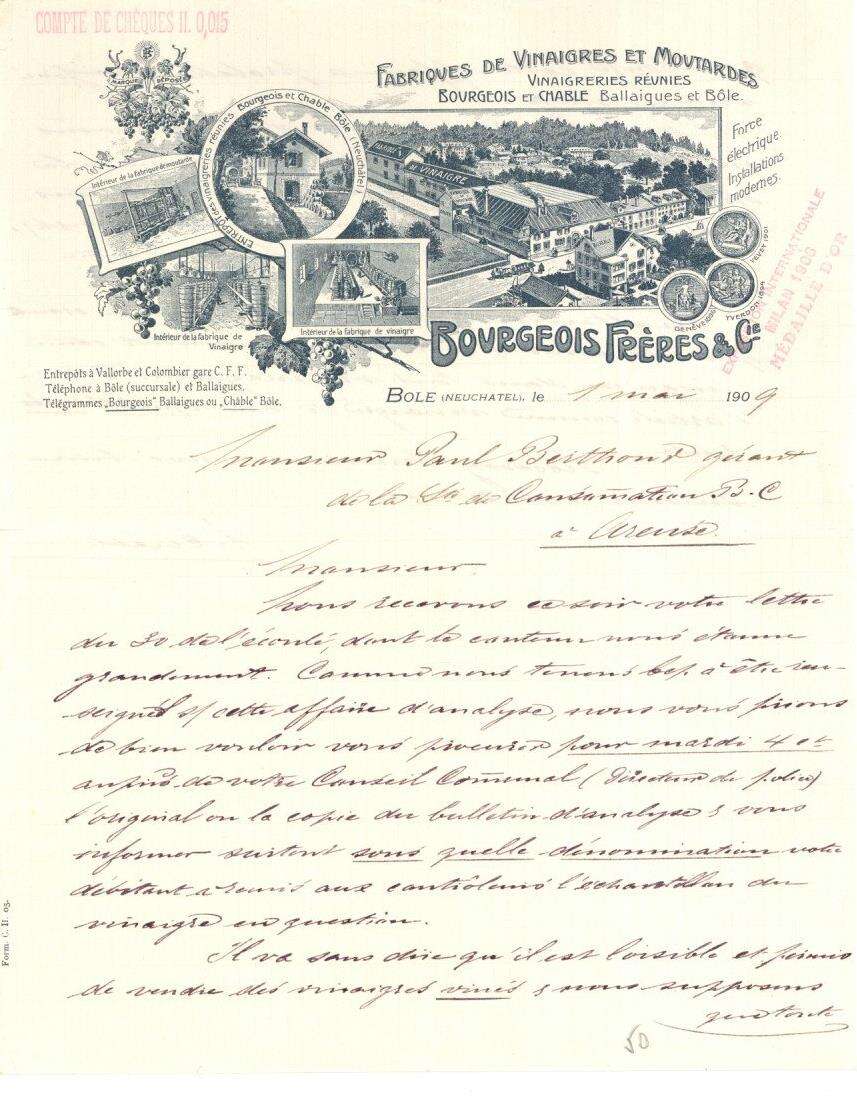 COMPTE DE CHÈQUES II. 0,015
MARQUE DÉPOSÉE
FABRIQUES DE VINAIGRES ET MOUTARDES
VINAIGRERIES RÉUNIES
BOURGEOIS ET CHABLE Ballaigues et Bôle.
Force
électrique.
Installations
modernes.
ENTREPÔT des vinaigreries réunies Bourgeois et Chable Bôle (Neuchâtel)
Intérieur de la fabrique de moutarde
VINAIGRE
Intérieur de la fabrique de
Vinaigre
Intérieur de la fabrique de vinaigre
VEVEY 1901
YVERDON 1894
GENÈVE 1896
EXPOSITION INTERNATIONALE
MILAN 1906
MÉDAILLE D'OR
BOURGEOIS FRÈRES & Cie
Entrepôts à Vallorbe et Colombier gare C. F. F.
Téléphone à Bôle (succursale) et Ballaigues.
Télégrammes „Bourgeois" Ballaigues ou „Châble" Bôle.
BOLE (NEUCHATEL), le 1 mai 1909
Monsieur Paul Berthoud gérant
de la Sté de Consommation B-C
à Areuse.
Monsieur.
Nous recevons ce soir votre lettre
du 30 de l'écoulé, dont le contenu nous étonne
grandement. Comme nous tenons bcp à être ren-
seignés s/ cette affaire d'analyse, nous vous prions
de bien vouloir vous procurer pour mardi 4 ct
auprès de votre Conseil Communal (Directeur de police)
l'original ou la copie du bulletin d'analyse & vous
informer surtout sous quelle dénomination votre
débitant a remis aux contrôleurs l'échantillon du
vinaigre en question.
Il va sans dire qu'il est loisible et permis
de vendre des vinaigres vinés & nous supposons
que toute
50
Form. C. II. 05.